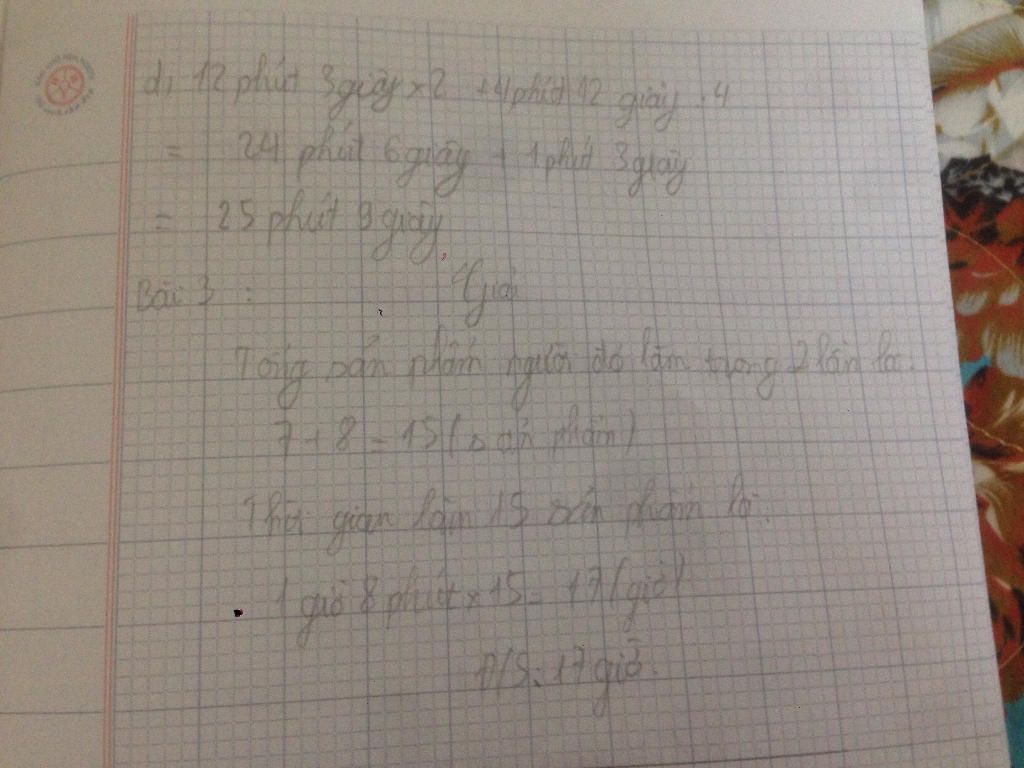 d, 12 phút 3 giây × 2 + 4 phút 12 giây : 4
= 24 phút 6 giây + 1 phút 3 giây
= 25 phút 9 giây
Bài 3 : Giải
Tổng sản phẩm người đó làm trong 2 lần là:
7 + 8 = 15 (sản phẩm)
Thời gian làm 15 sản phẩm là:
1 giờ 8 phút × 15 = 17 (giờ)
Đ/S: 17 giờ.